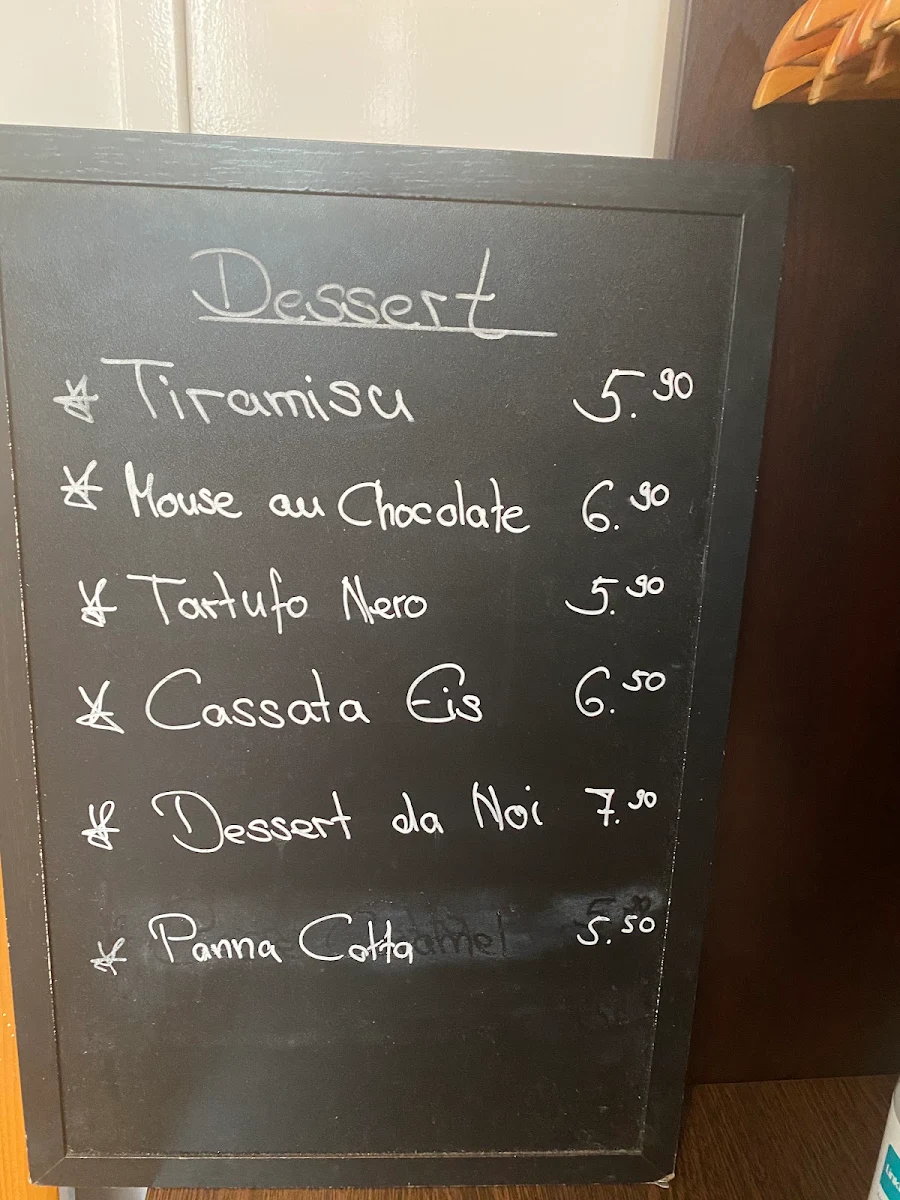 Dessert
* Tiramisu 5.90
* Mouse au Chocolate 6.90
* Tartufo Nero 5.90
* Cassata Eis 6.50
* Dessert da Noi 7.90
* Panna Cotta 5.50